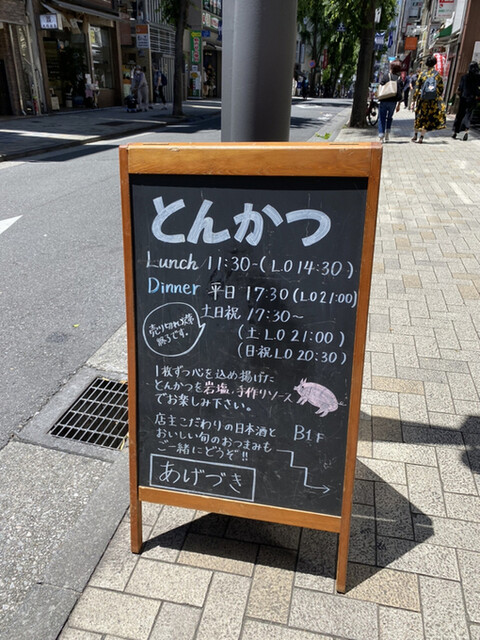 とんかつ
Lunch 11:30-(L.O 14:30)
Dinner 平日 17:30 (L.O 21:00)
土日祝 17:30〜
(土 L.O 21:00)
(日祝 L.O 20:30)
売り切れ次第
終了です。
1枚ずつ心を込め揚げた
とんかつを岩塩、手作りソース
でお楽しみ下さい。
店主こだわりの日本酒と
おいしい旬のおつまみも
ご一緒にどうぞ!!
B1F
あげづき